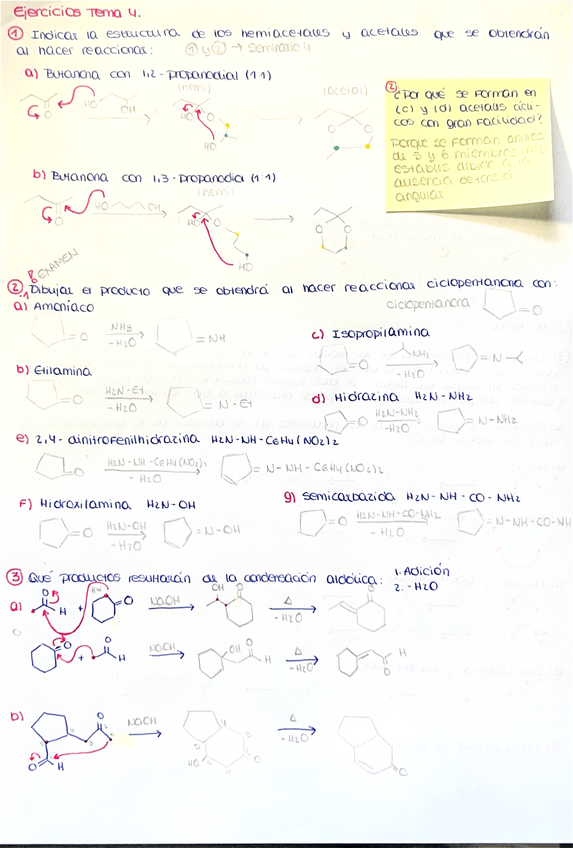 Ejercicios Tema 4.
① Indicar la estructura de los hemiacetales y acetales que se obtendrán
al hacer reaccionar: ① y ② → Seminario 4
a) Butanona con 1,2-propanodial (1:1)
(hemi) (acetal)
HO OH
HO
HO
② ¿Por qué se forman en
(c) y (d) acetales cícli-
cos con gran facilidad?
Porque se forman anillos
de 5 y 6 miembros
estables debido a la
ausencia de tensión
angular
b) Butanona con 1,3-propanodial (1:1)
(hemi)
HO OH
HO
HO
EXAMEN
② Dibujar el producto que se obtendrá al hacer reaccionar ciclopentanona con:
a) Amoníaco
ciclopentanona: =O
=O NH3 -H2O =NH
c) Isopropilamina
=O NH2 -H2O =N
b) Etilamina
=O H2N-Et -H2O =N-Et
d) Hidrazina H2N-NH2
=O H2N-NH2 -H2O =N-NH2
e) 2,4-dinitrofenilhidrazina H2N-NH-C6H4(NO2)2
=O H2N-NH-C6H4(NO2)2 -H2O =N-NH-C6H4(NO2)2
f) Hidroxilamina H2N-OH
=O H2N-OH -H2O =N-OH
g) Semicarbazida H2N-NH-CO-NH2
=O H2N-NH-CO-NH2 -H2O =N-NH-CO-NH
③ Qué productos resultarán de la condensación aldólica: 1. Adición
2. -H2O
a) O H + O NaOH OH O Δ -H2O O
O + O H NaOH OH O H Δ -H2O H O
b) O O H NaOH HO O Δ -H2O O